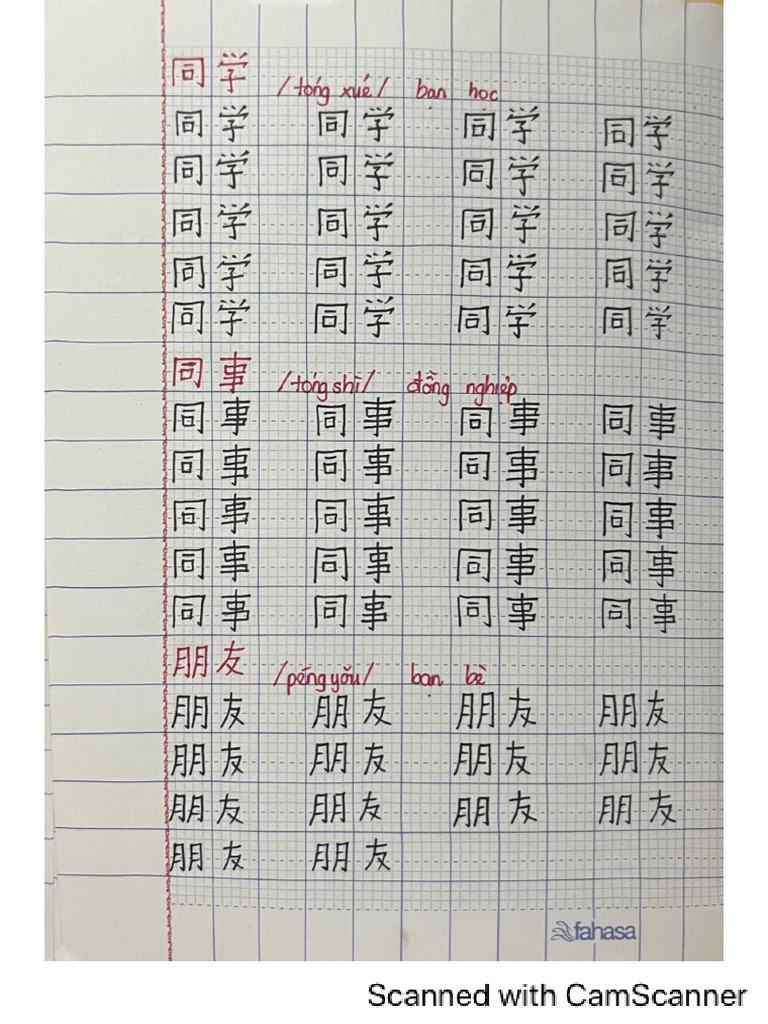 同学 /tóng xué/ bạn học
同学 同学 同学 同学
同学 同学 同学 同学
同学 同学 同学 同学
同学 同学 同学 同学
同学 同学 同学 同学
同事 /tóng shì/ đồng nghiệp
同事 同事 同事 同事
同事 同事 同事 同事
同事 同事 同事 同事
同事 同事 同事 同事
同事 同事 同事 同事
朋友 /péngyǒu/ bạn bè
朋友 朋友 朋友 朋友
朋友 朋友 朋友 朋友
朋友 朋友 朋友 朋友
朋友 朋友
fahasa
Scanned with CamScanner